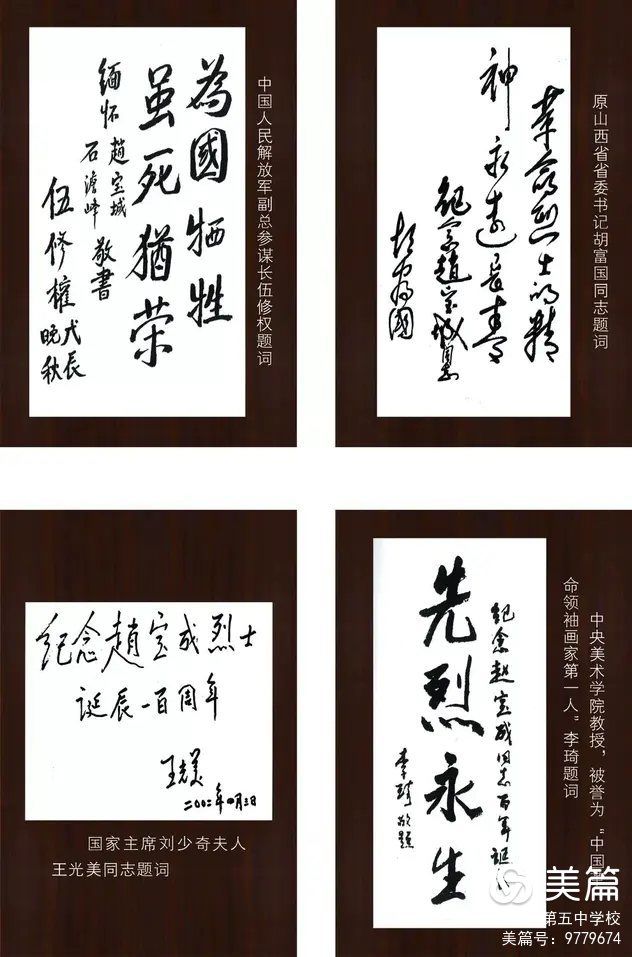 為國牺牲
虽死猶荣
缅怀趙宝城
石澹峰
敬書
伍修權
戊辰
晚秋
中国人民解放军副总参谋长伍修权题词
革命烈士的精
神永远長青
纪念趙宝成
胡富國
原山西省省委书记胡富国同志题词
纪念趙宝成烈士
诞辰一百周年
王光美
二00二年四月三日
国家主席刘少奇夫人
王光美同志题词
纪念趙宝成同志百年诞辰
先烈永生
李琦敬题
中央美术学院教授，被誉为“中国革
命领袖画家第一人”李琦题词
美篇
第五中学校
美篇号：9779674